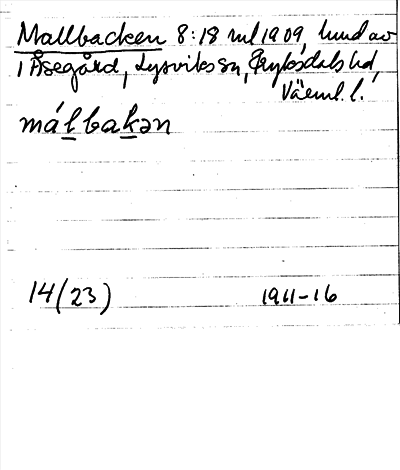 Mallbacken 8:18 ml 1909, lund av
1 Åsegård, Lysviks sn, Fryksdals hd,
Värml. l.
málbakən
14(23) 1911-16